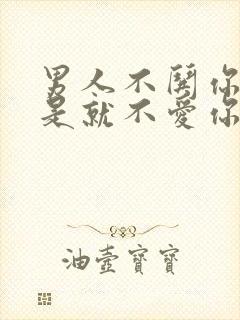 男人不鬧你
是就不愛你
油壺寶寶